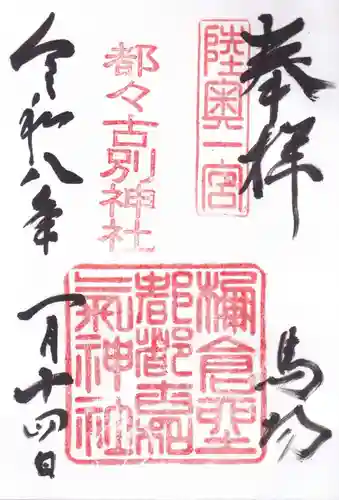 奉拝
馬場
陸奥一宮
棚倉
都都古和
氣神社
都々古別神社
令和八年
一月十四日